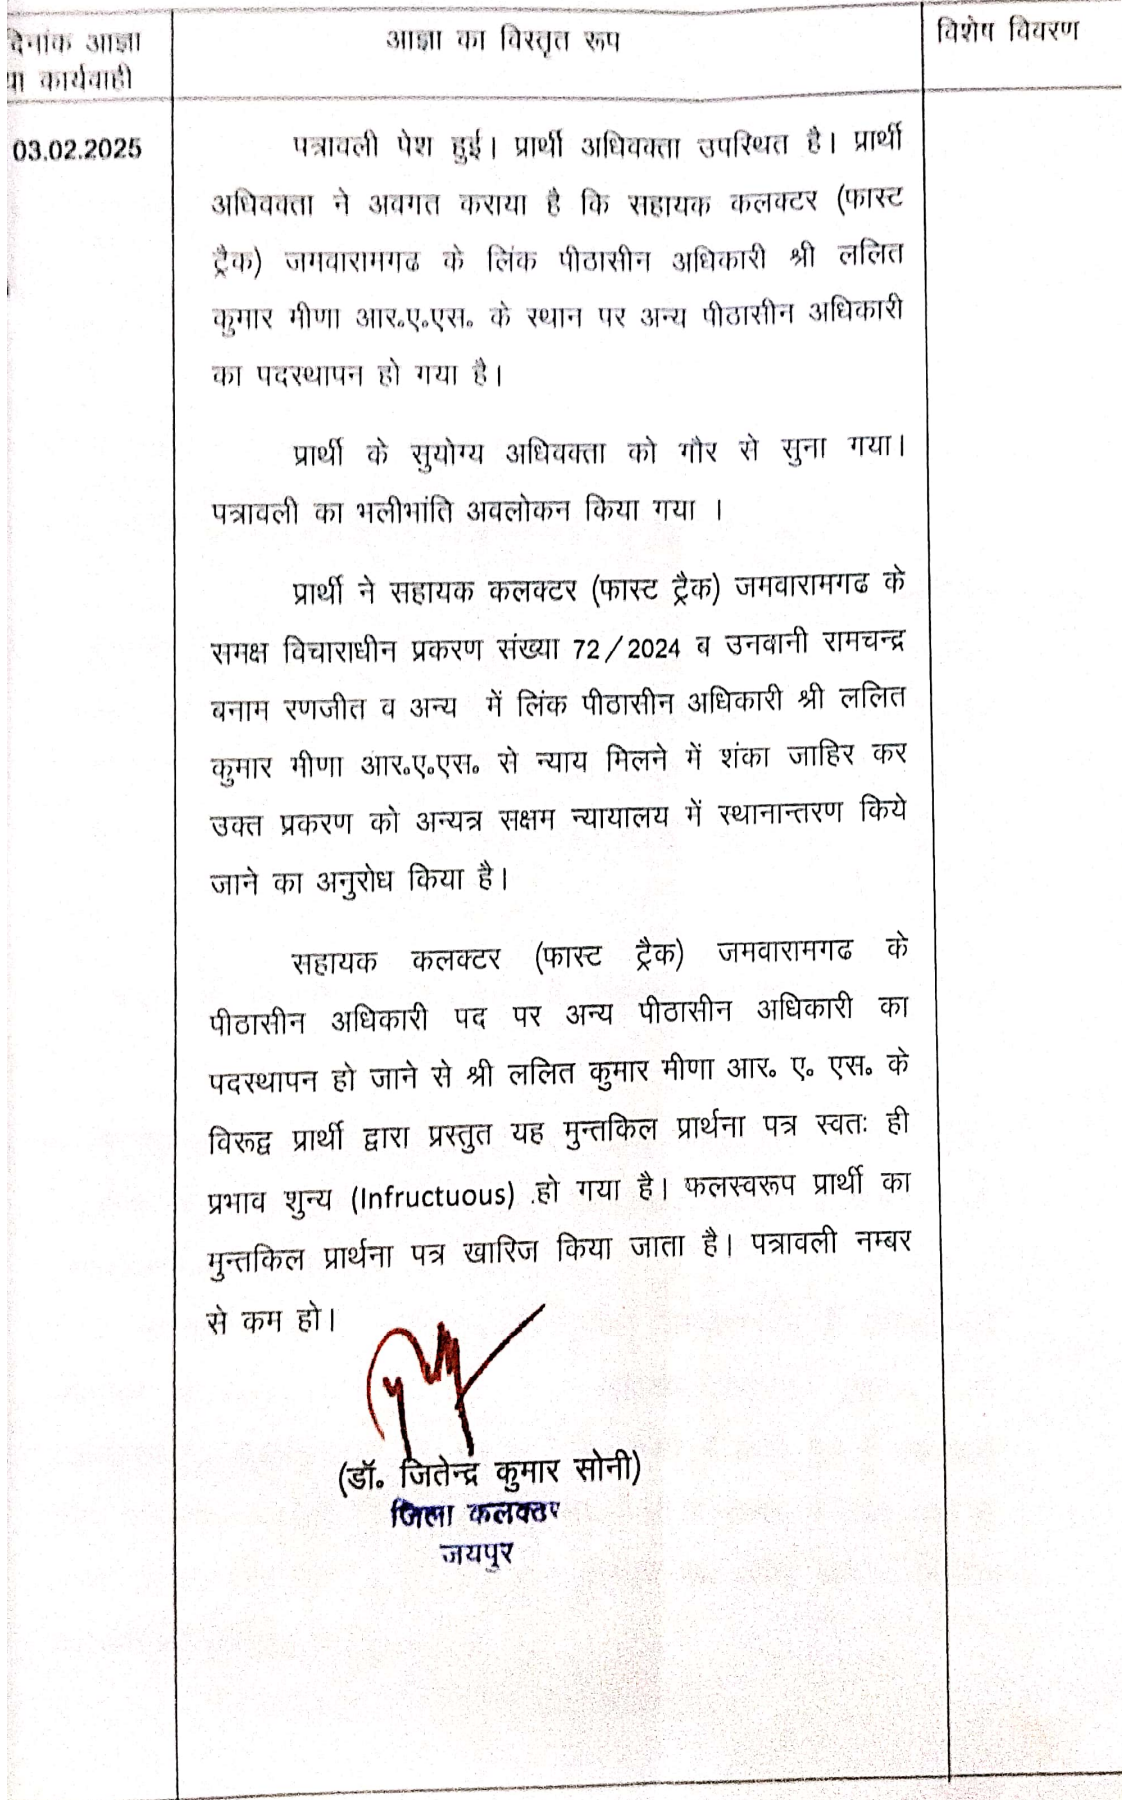 दिनांक आज्ञा
या कार्यवाही
आज्ञा का विस्तृत रूप
विशेष विवरण
03.02.2025
पत्रावली पेश हुई। प्रार्थी अधिवक्ता उपस्थित है। प्रार्थी
अधिवक्ता ने अवगत कराया है कि सहायक कलक्टर (फास्ट
ट्रैक) जमवारामगढ के लिंक पीठासीन अधिकारी श्री ललित
कुमार मीणा आर.ए.एस. के स्थान पर अन्य पीठासीन अधिकारी
का पदस्थापन हो गया है।
प्रार्थी के सुयोग्य अधिवक्ता को गौर से सुना गया।
पत्रावली का भलीभांति अवलोकन किया गया ।
प्रार्थी ने सहायक कलक्टर (फास्ट ट्रैक) जमवारामगढ के
समक्ष विचाराधीन प्रकरण संख्या 72/2024 ब उनवानी रामचन्द्र
बनाम रणजीत व अन्य में लिंक पीठासीन अधिकारी श्री ललित
कुमार मीणा आर.ए.एस. से न्याय मिलने में शंका जाहिर कर
उक्त प्रकरण को अन्यत्र सक्षम न्यायालय में स्थानान्तरण किये
जाने का अनुरोध किया है।
सहायक कलक्टर (फास्ट ट्रैक) जमवारामगढ के
पीठासीन अधिकारी पद पर अन्य पीठासीन अधिकारी का
पदस्थापन हो जाने से श्री ललित कुमार मीणा आर. ए. एस. के
विरूद्व प्रार्थी द्वारा प्रस्तुत यह मुन्तकिल प्रार्थना पत्र स्वतः ही
प्रभाव शुन्य (Infructuous) .हो गया है। फलस्वरूप प्रार्थी का
मुन्तकिल प्रार्थना पत्र खारिज किया जाता है। पत्रावली नम्बर
से कम हो।
(डॉ. जितेन्द्र कुमार सोनी)
जिला कलक्टर
जयपुर